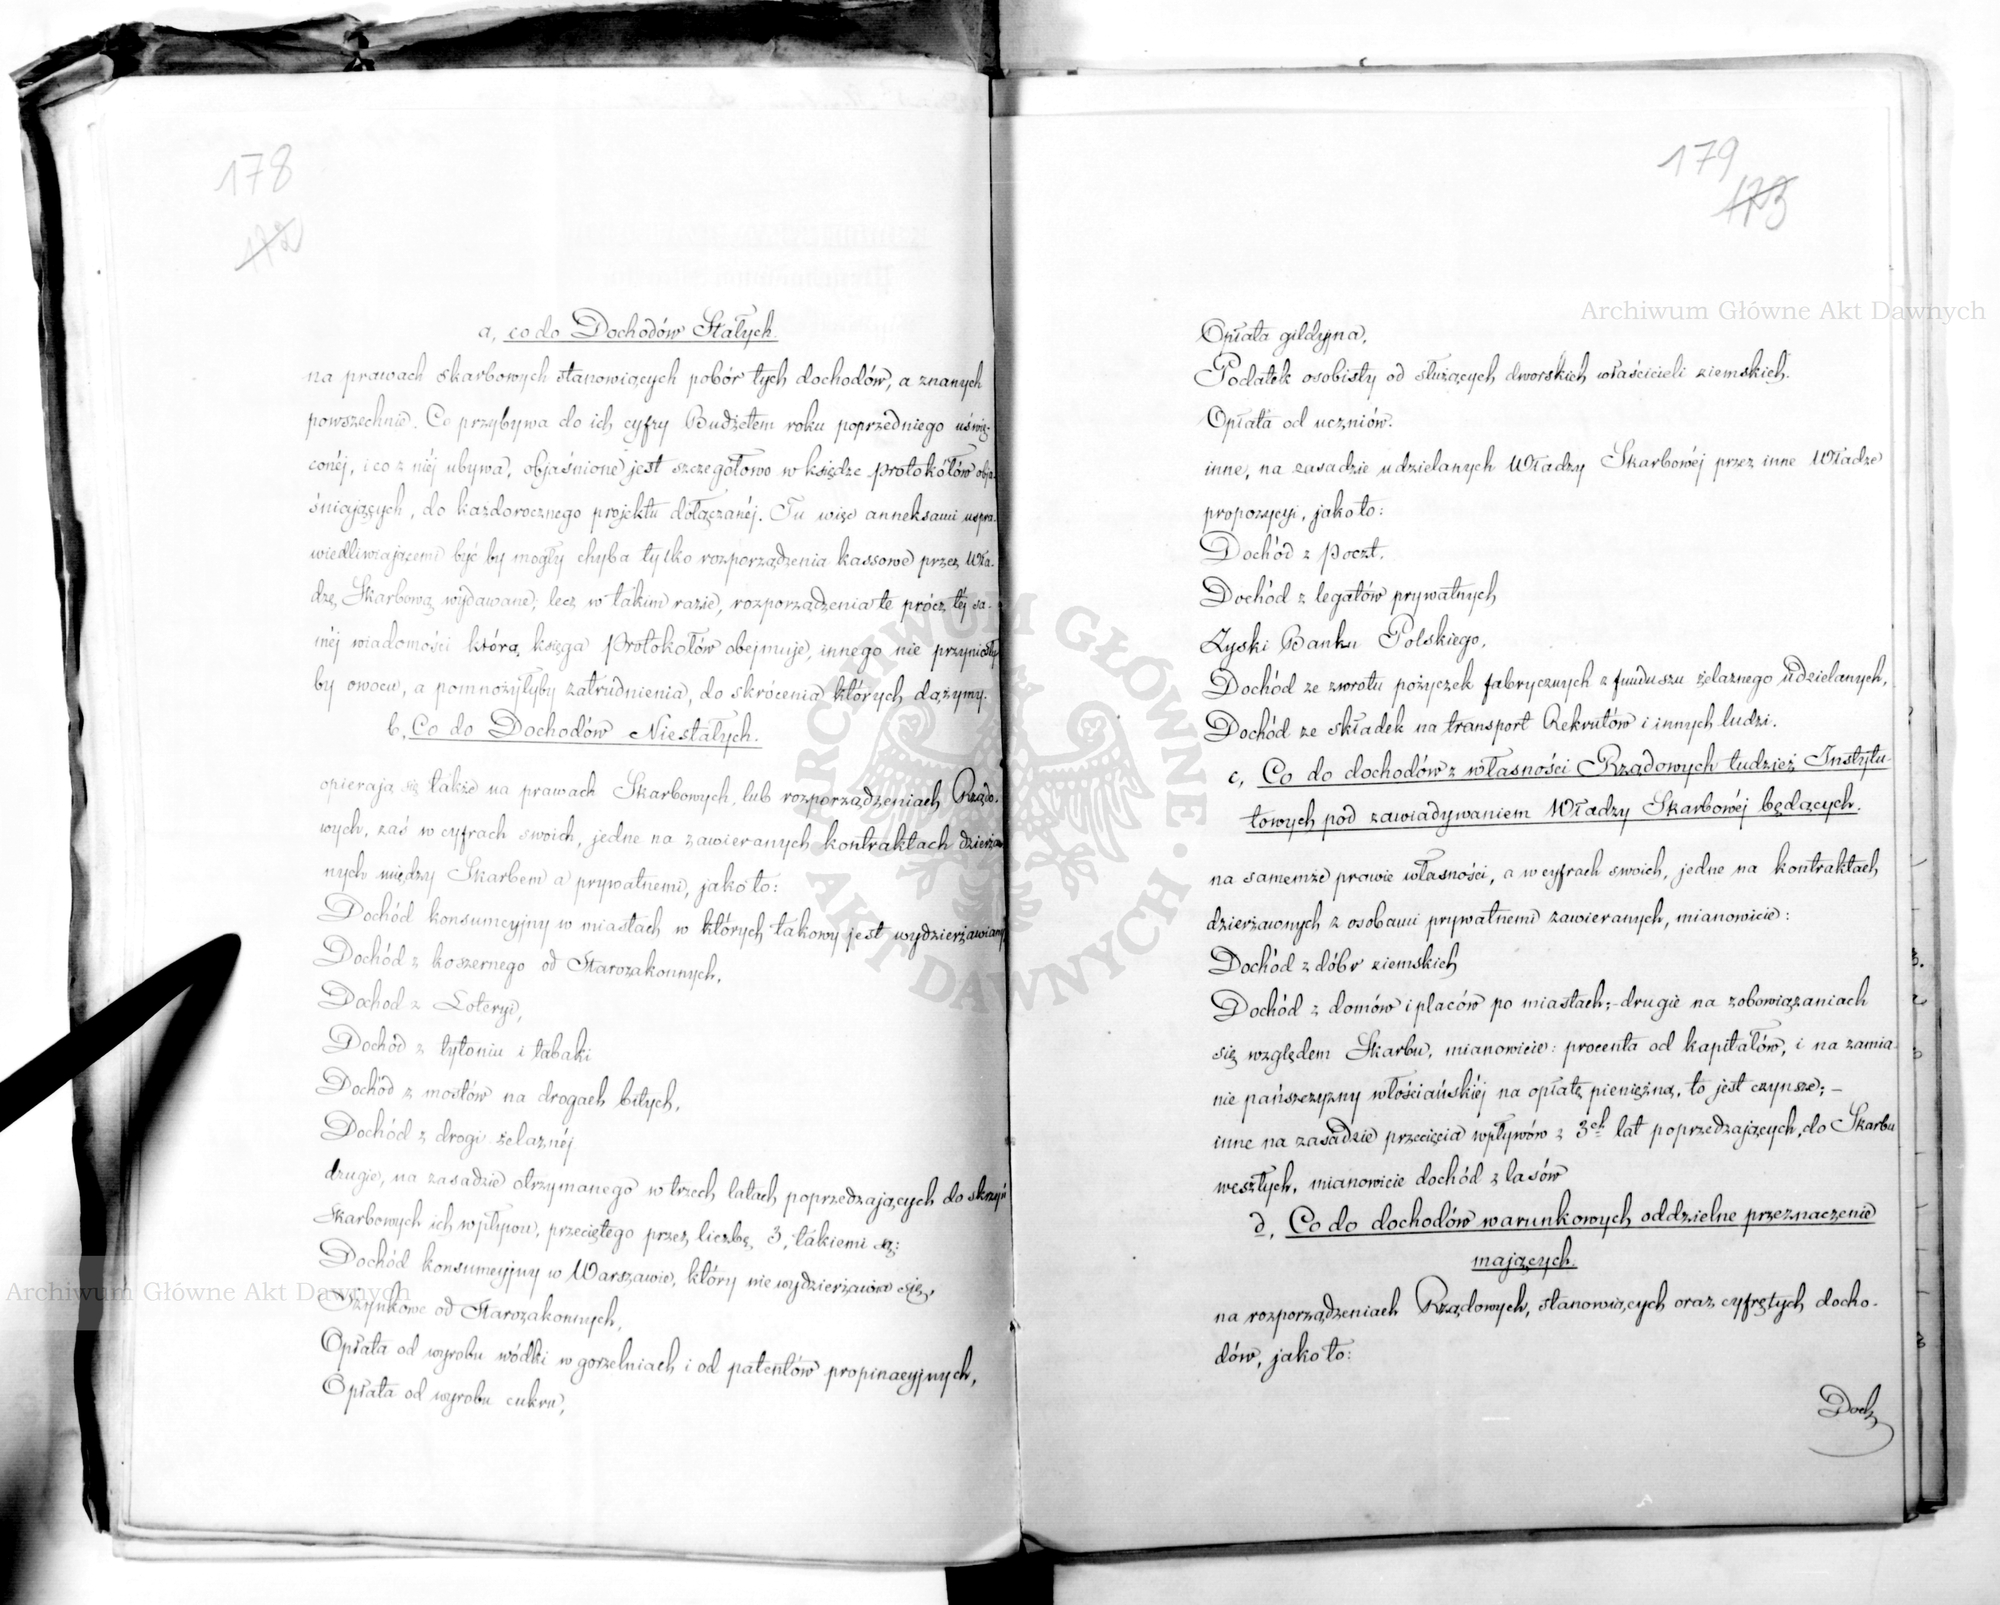 178
172
a, co do Dochodów Stałych.
na prawach skarbowych stanowiących pobór tych dochodów, a znanych
powszechnie. Co przybywa do ich cyfry Budżetem roku poprzedniego uświę-
conéj, i co z niéj ubywa, objaśnione jest szczegółowo w księdze protokółów obja-
śniających, do każdorocznego projektu dołączanéj. Tu więc anneksami uspra-
wiedliwiającemi być by mogły chyba tylko rozporządzenia kassowe przez Wła-
dzę Skarbową wydawane; lecz w takim razie, rozporządzenia te prócz téj sa-
méj wiadomości którą księga Protokołów obejmuje, innego nie przyniosły
by owocu, a pomnożyłyby zatrudnienia, do skrócenia których dążymy.
b, Co do Dochodów Niestałych.
opierają się także na prawach Skarbowych, lub rozporządzeniach Rządo-
wych, zaś w cyfrach swoich, jedne na zawieranych kontraktach dzierża-
nych między Skarbem a prywatnemi, jako to:
Dochód konsumcyjny w miastach w których takowy jest wydzierżawiany
Dochód z koszernego od Starozakonnych,
Dochod z Loteryi,
Dochód z tytoniu i tabaki
Dochód z mostów na drogach bitych,
Dochód z drogi żelaznéj
drugie, na zasadzie otrzymanego w trzech latach poprzedzających do skrzyń
Skarbowych ich wpływu, przeciętego przez liczbę 3, takiemi są:
Dochód konsumcyjny w Warszawie, który nie wydzierżawia się,
Szynkowe od Starozakonnych,
Opłata od wyrobu wódki w gorzelniach i od patentów propinacyjnych,
Opłata od wyrobu cukru,
179
173
Opłata gildyjna,
Podatek osobisty od służących dworskich właścicieli ziemskich.
Opłata od uczniów.
inne, na zasadzie udzielanych Władzy Skarbowéj przez inne Władze
propozycyi, jako to:
Dochód z Poczt.
Dochód z legatów prywatnych
Zyski Banku Polskiego,
Dochód ze zwrotu pożyczek fabrycznych z funduszu żelaznego udzielanych,
Dochód ze składek na transport Rekrutów i innych ludzi.
c, Co do dochodów z własności Rządowych tudzież Instytu-
towych pod zawiadywaniem Władzy Skarbowéj będących.
na samemże prawie własności, a w cyfrach swoich, jedne na kontraktach
dzierżawnych z osobami prywatnemi zawieranych, mianowicie:
Dochód z dóbr ziemskich
Dochód z domów i placów po miastach; - drugie na zobowiązaniach
się względem Skarbu, mianowicie: procenta od kapitałów, i na zamia-
nie pańszczyzny włościańskiéj na opłatę pieniężną, to jest czynsze; -
inne na zasadzie przecięcia wpływów z 3ch lat poprzedzających, do Skarbu
weszłych, mianowicie dochód z lasów
d, Co do dochodów warunkowych oddzielne przeznaczenie
mających.
na rozporządzeniach Rządowych, stanowiących oraz cyfrę tych docho-
dów, jako to:
Doch
Archiwum Główne Akt Dawnych
Archiwum Główne Akt Dawnych
ARCHIWUM GŁÓWNE · AKT DAWNYCH ·